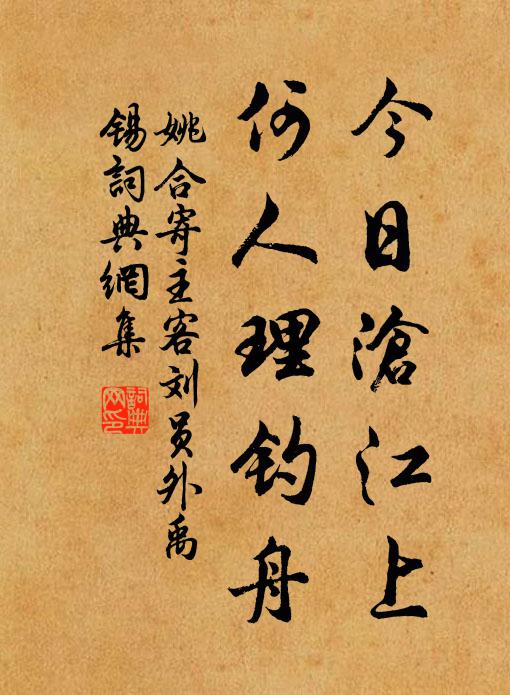 今日滄江上
何人理釣舟
姚合寄主客刘員外禹
锡詞典網集
詞典
网印